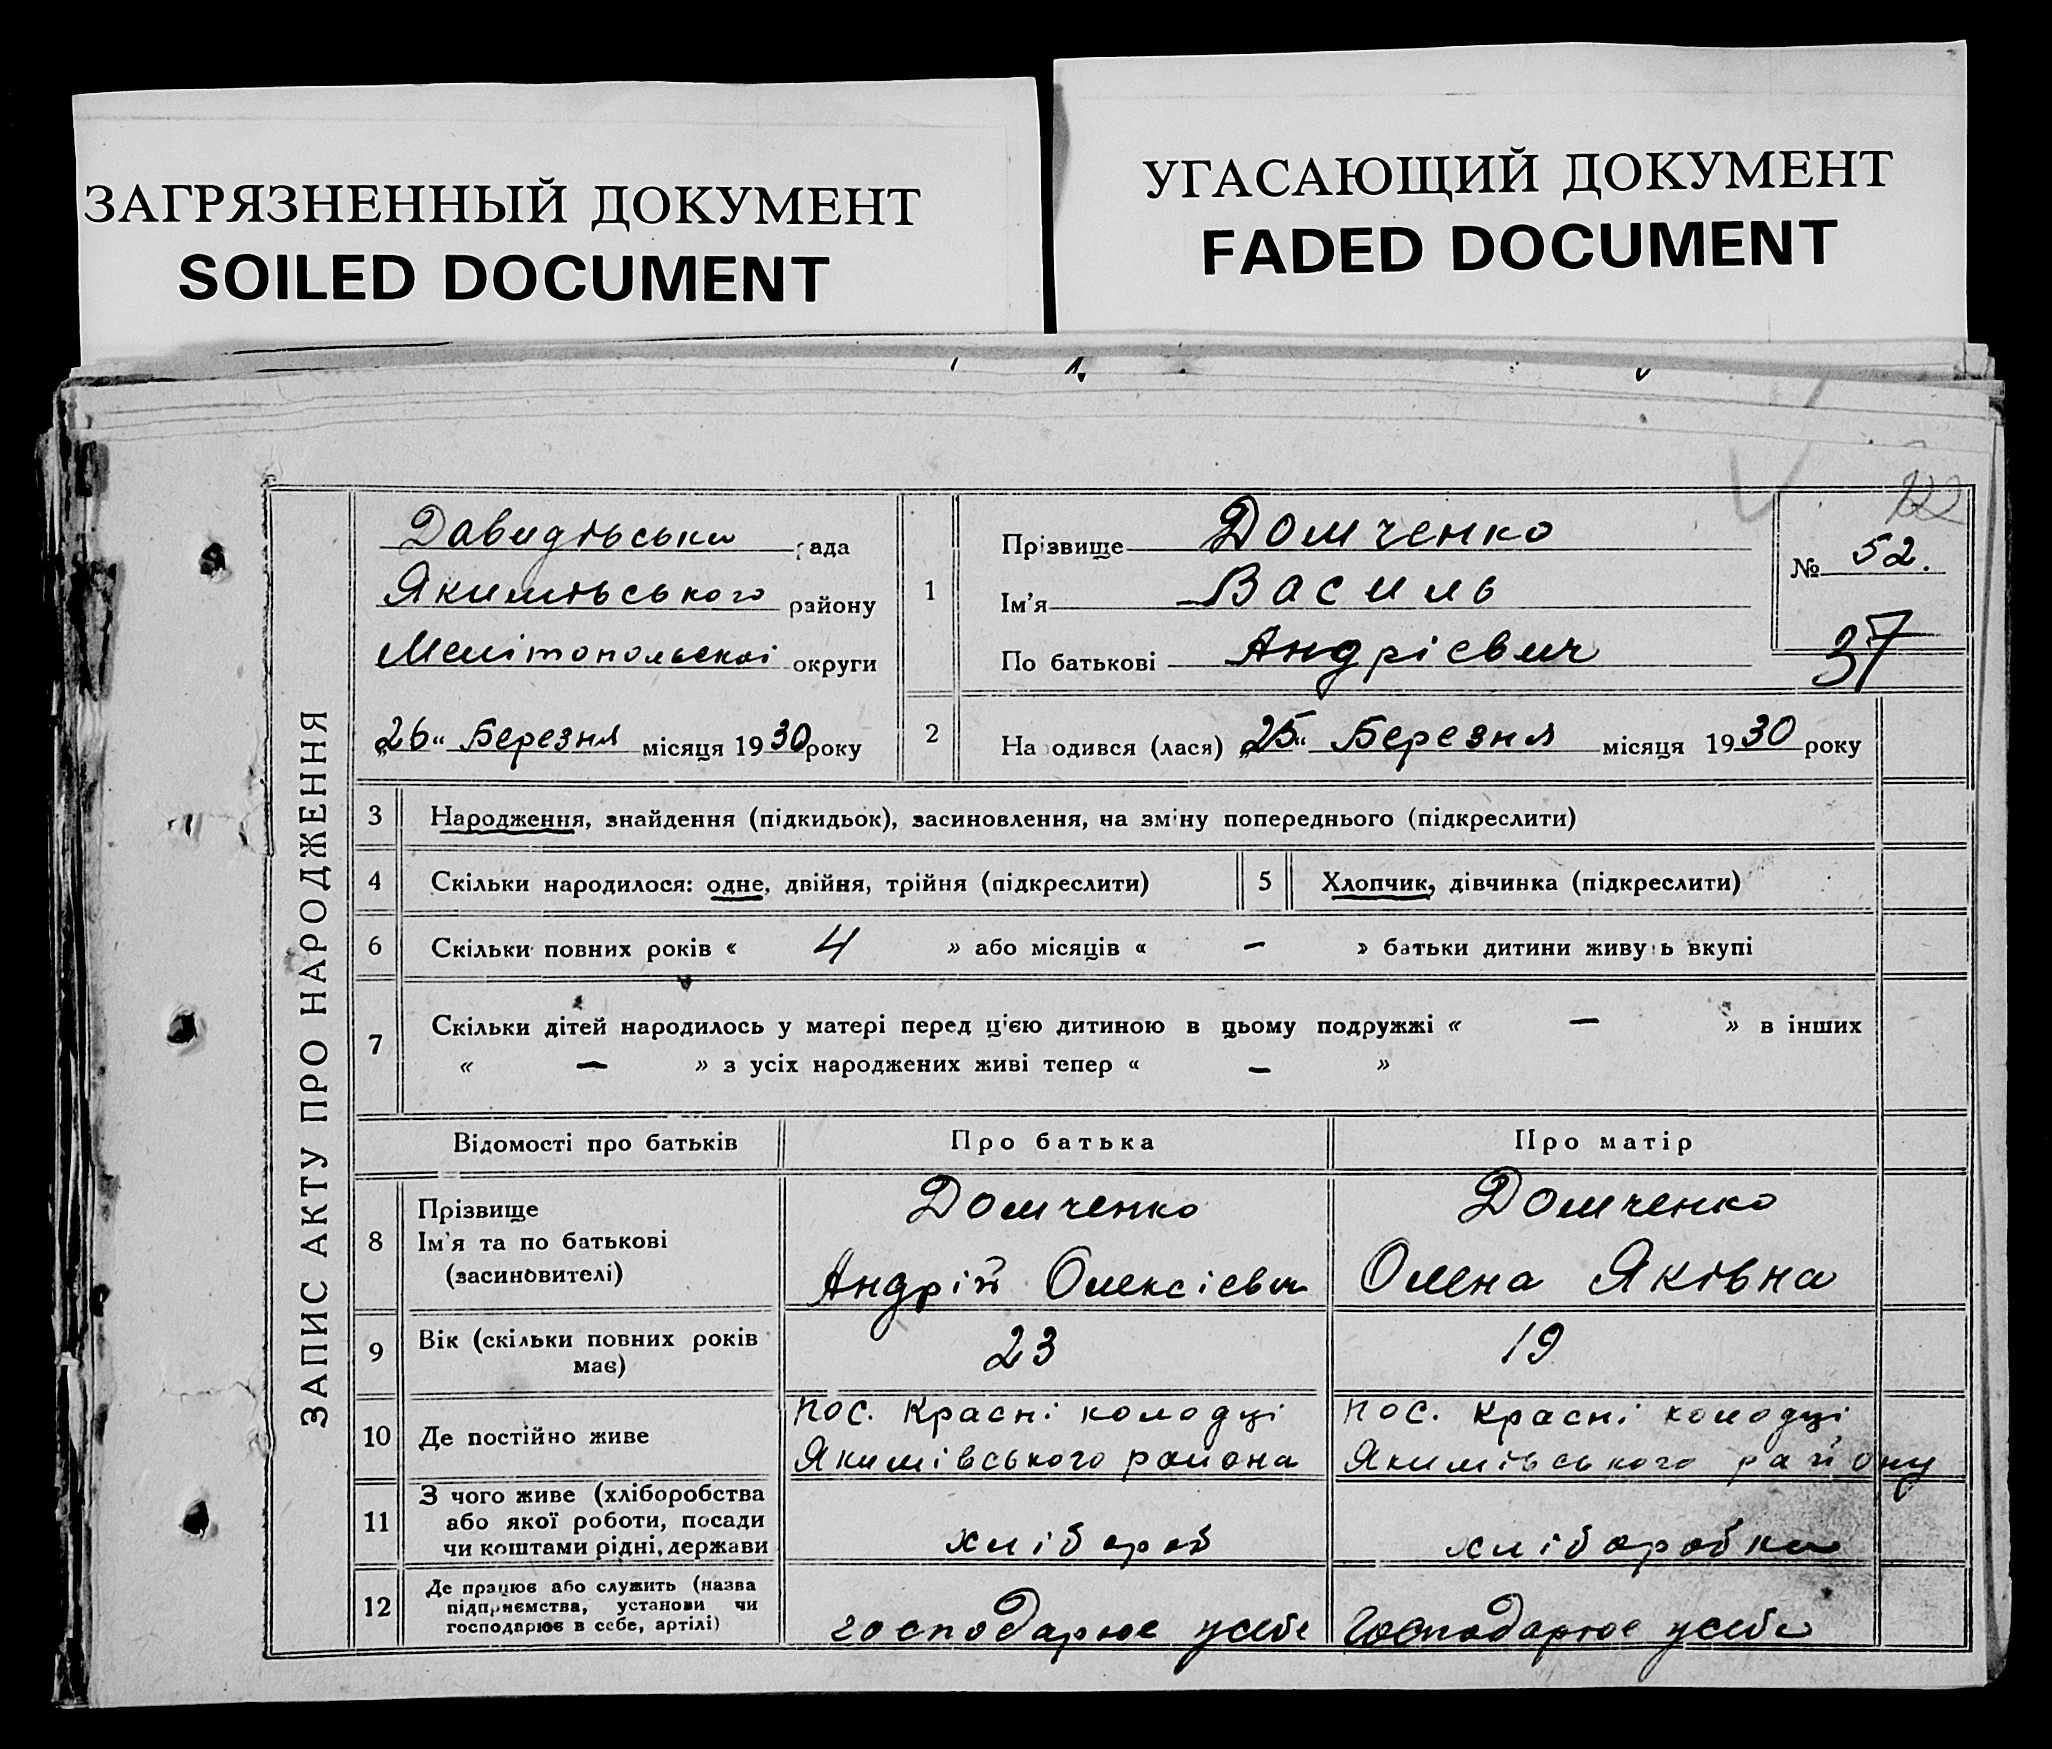 ЗАГРЯЗНЕННЫЙ ДОКУМЕНТ
SOILED DOCUMENT
УГАСАЮЩИЙ ДОКУМЕНТ
FADED DOCUMENT
ЗАПИС АКТУ ПРО НАРОДЖЕННЯ
Давидівська рада
Якимівського району
Мелітопольскої округи
„26“ Березня місяця 1930 року
1
Прізвище Домченко
Ім'я Василь
По батькові Андрієвич
№ 52.
37
2
Народився (лася) „25“ Березня місяця 1930 року
3 Народження, знайдення (підкидьок), засиновлення, на зміну попереднього (підкреслити)
4 Скільки народилося: одне, двійня, трійня (підкреслити)
5 Хлопчик, дівчинка (підкреслити)
6 Скільки повних років « 4 » або місяців « — » батьки дитини живуть вкупі
7 Скільки дітей народилось у матері перед цією дитиною в цьому подружжі « — » в інших
« — » з усіх народжених живі тепер « — »
Відомості про батьків Про батька Про матір
8 Прізвище
Ім'я та по батькові
(засиновителі)
Домченко
Андрій Олексієвич
Домченко
Олена Яківна
9 Вік (скільки повних років
має)
23
19
10 Де постійно живе
пос. Красні колодці
Якимівського района
пос. Красні колодці
Якимівського району
11 З чого живе (хліборобства
або якої роботи, посади
чи коштами рідні, держави
хлібороб
хліборобка
12 Де працює або служить (назва
підприємства, установи чи
господарює в себе, артілі)
господарює у себе
Господарює у себе